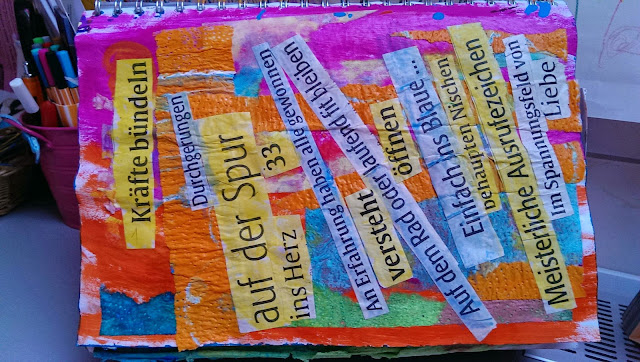 Kräfte bündeln
Durchgerungen
auf der Spur
33
ins Herz
An Erfahrung haben alle gewonnen
versteht
öffnen
Auf dem Rad oder laufend fit bleiben
Einfach ins Blaue...
behaupten Nischen
Meisterliche Ausrufezeichen
im Spannungsfeld von
Liebe